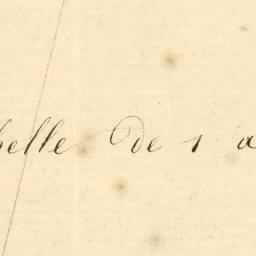 belle de 1 a